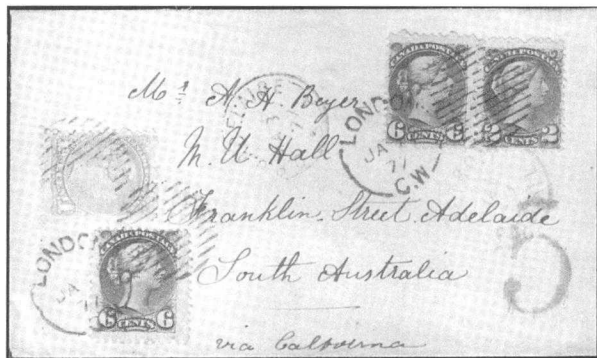 CANADA POSTAGE CANADA POSTAGE
6 CENTS 6 2 CENTS 2
LONDON
JA
71
C.W
Mr A. H. Beyer
M. U Hall
Franklin Street Adelaide
South Australia
via California
LONDON
JA
CANADA POSTAGE
6 CENTS 6
5